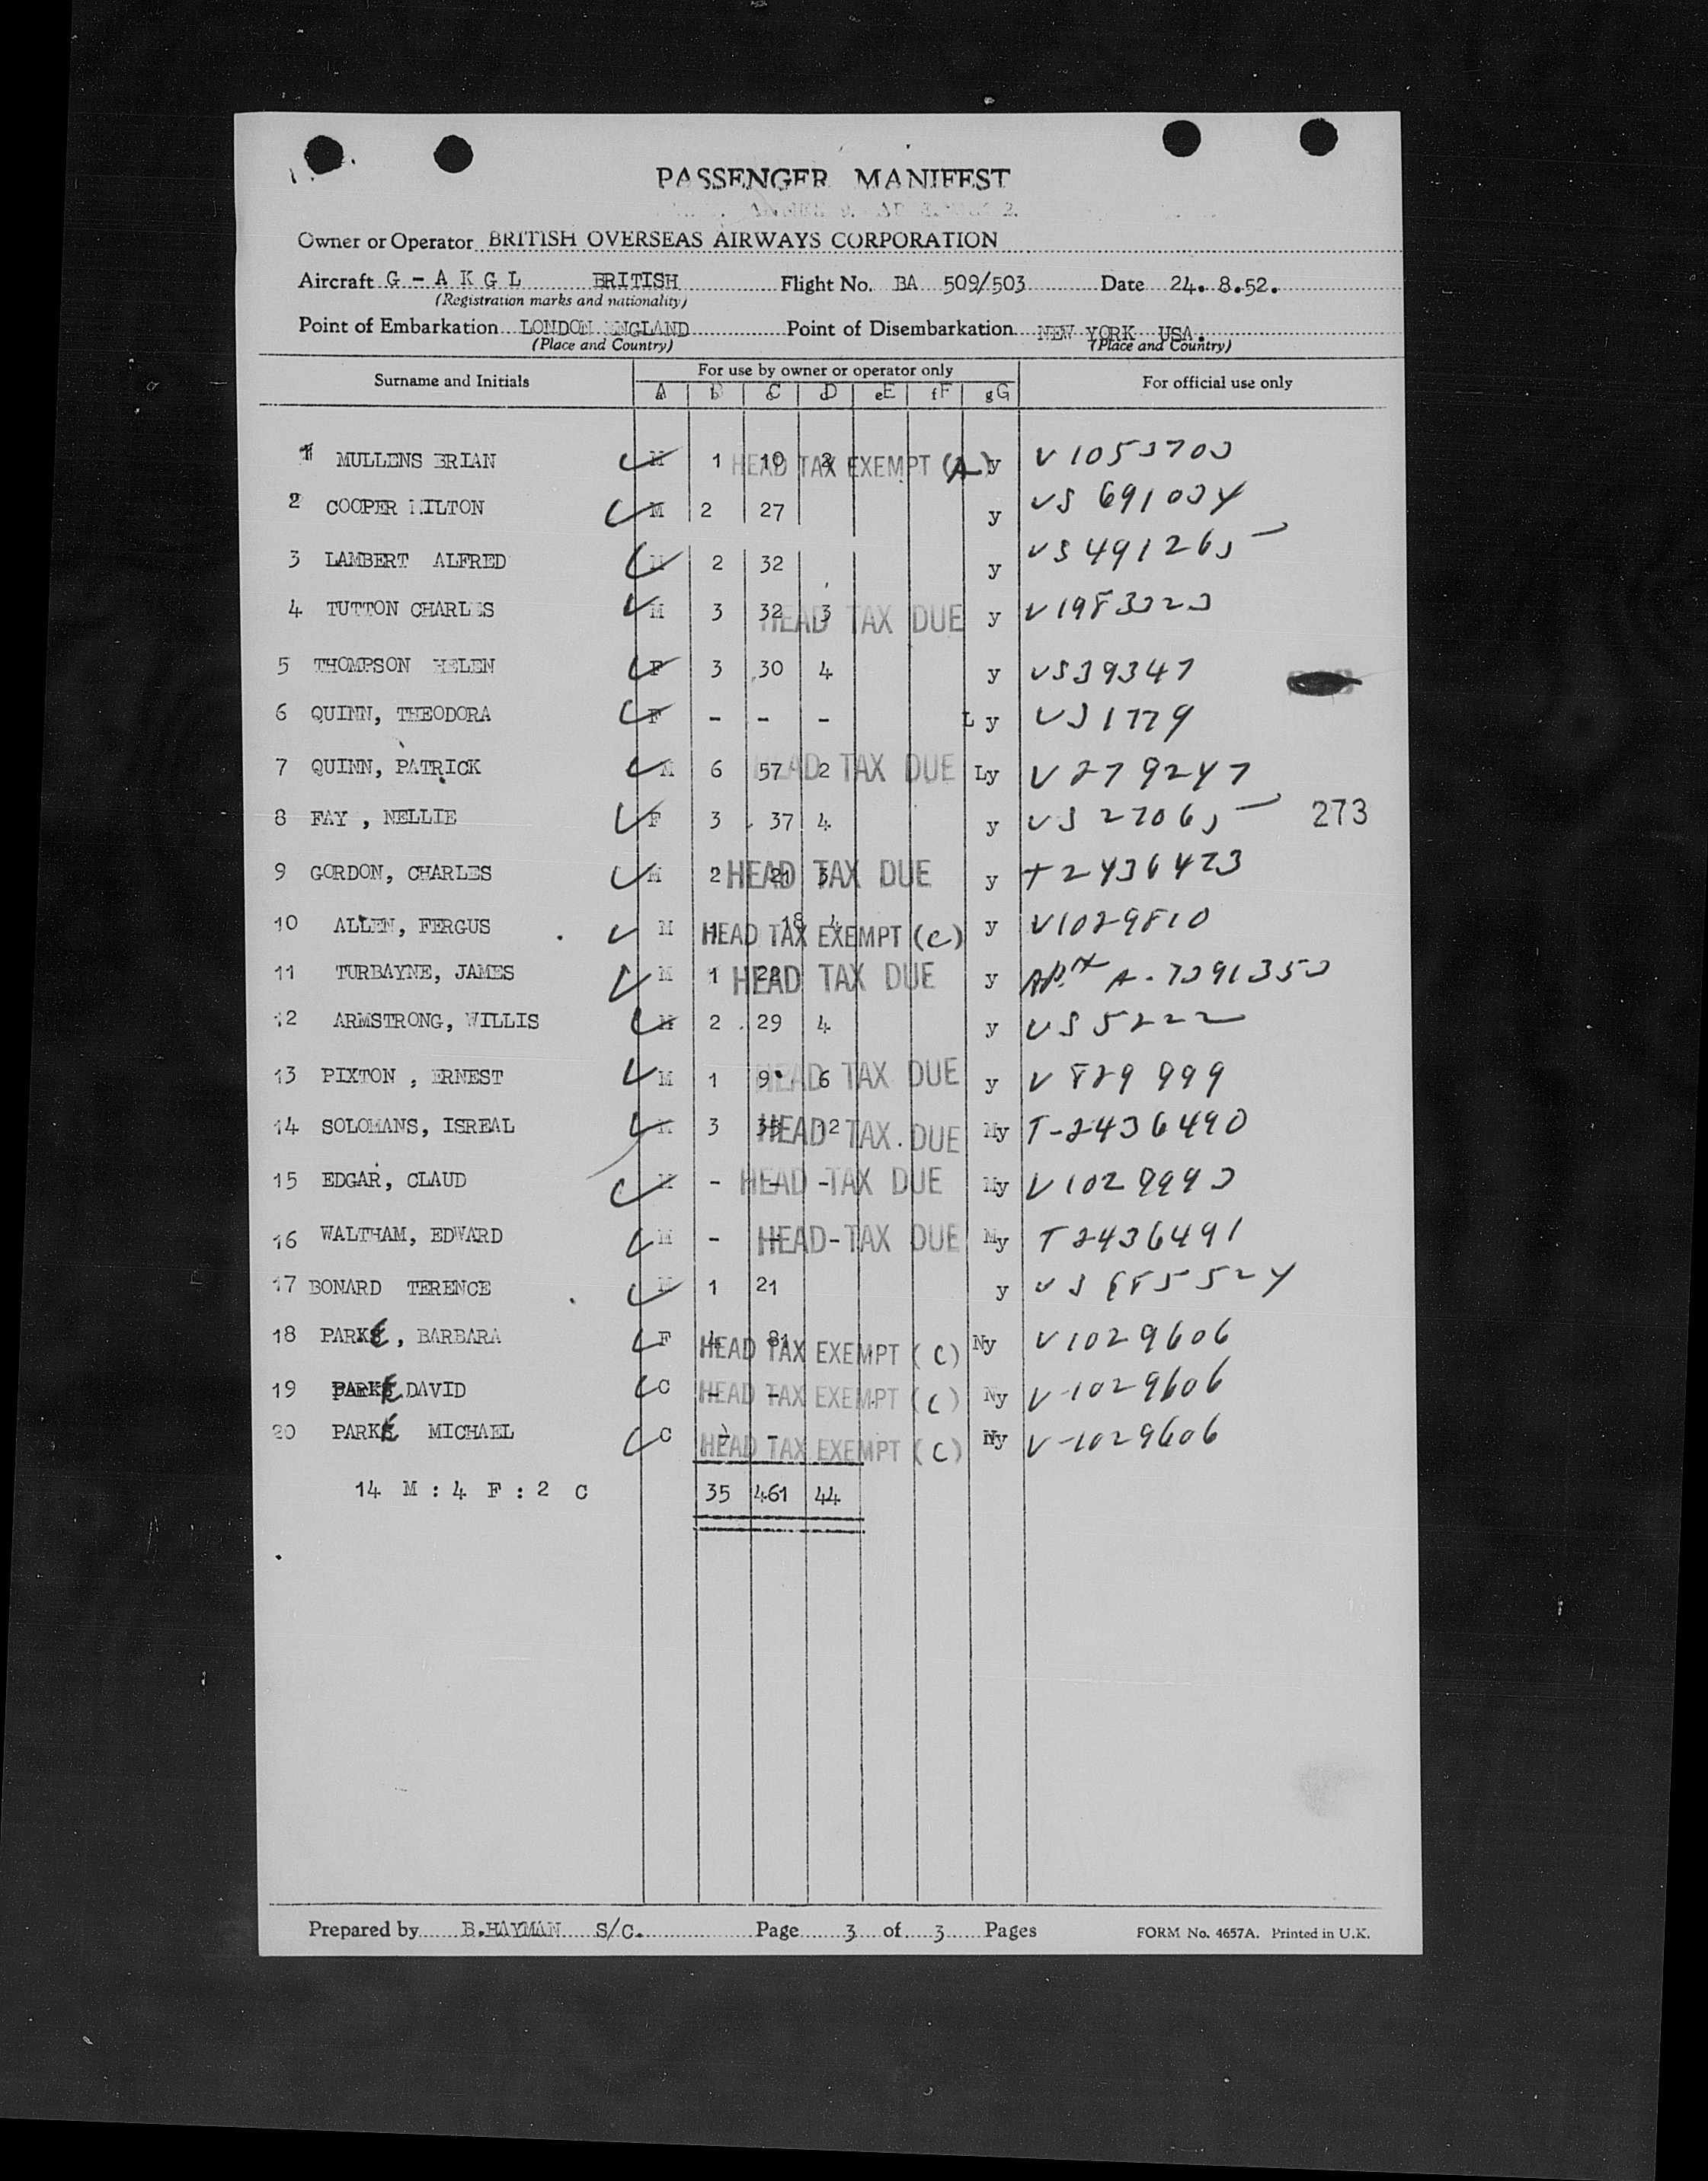 PASSENGER MANIFEST
Owner or Operator BRITISH OVERSEAS AIRWAYS CORPORATION
Aircraft G - A K G L BRITISH Flight No. BA 509/503 Date 24. 8.52.
(Registration marks and nationality)
Point of Embarkation LONDON ENGLAND Point of Disembarkation NEW YORK USA.
(Place and Country) (Place and Country)
Surname and Initials For use by owner or operator only For official use only
A B C D E F G
1 MULLENS BRIAN M 1 10 2 HEAD TAX EXEMPT (A) y V1053700
2 COOPER MILTON M 2 27 y
3 LAMBERT ALFRED M 2 32 y VS491265
4 TUTTON CHARLES M 3 32 3 HEAD TAX DUE y
5 THOMPSON HELEN F 3 30 4 y VS39347
6 QUINN, THEODORA F - - - L y VS1779
7 QUINN, PATRICK M 6 57 2 HEAD TAX DUE Ly V279247
8 FAY , NELLIE F 3 37 4 y VS 27065 273
9 GORDON, CHARLES M 2 21 3 HEAD TAX DUE y T2436423
10 ALLEN, FERGUS M 1 18 4 HEAD TAX EXEMPT (C) y V1029810
11 TURBAYNE, JAMES M 1 22 HEAD TAX DUE y A-7091350
12 ARMSTRONG, WILLIS M 2 29 4 y VS 5222
13 PIXTON , ERNEST M 1 9 6 HEAD TAX DUE y V 829 999
14 SOLOMANS, ISREAL M 3 35 12 HEAD TAX DUE My T-2436490
15 EDGAR, CLAUD M - - - HEAD TAX DUE My V1029990
16 WALTHAM, EDWARD M - - - HEAD TAX DUE My T2436491
17 BONARD TERENCE M 1 21 y VS 885524
18 PARKE, BARBARA F 4 81 HEAD TAX EXEMPT (C) Ny V1029606
19 PARKE DAVID C - - HEAD TAX EXEMPT (C) Ny V-1029606
20 PARKE MICHAEL C - - HEAD TAX EXEMPT (C) Ny V-1029606
14 M : 4 F : 2 C 35 461 44
Prepared by B.HAYMAN S/C. Page 3 of 3 Pages FORM No. 4657A. Printed in U.K.